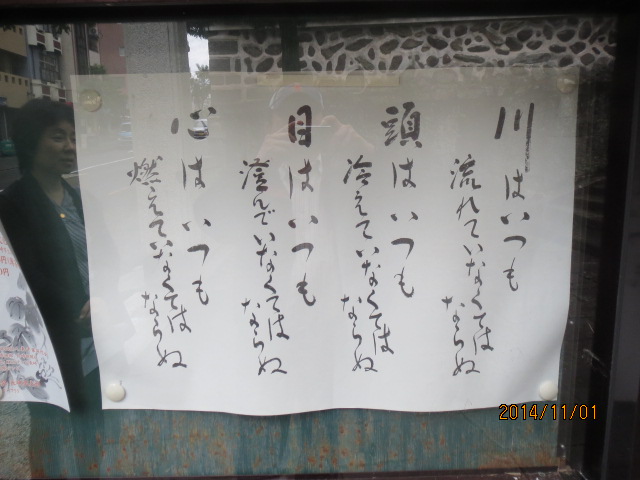 川はいつも
流れていなくては
ならぬ
頭はいつも
冷えていなくては
ならぬ
目はいつも
澄んでいなくては
ならぬ
心はいつも
燃えていなくては
ならぬ
2014/11/01